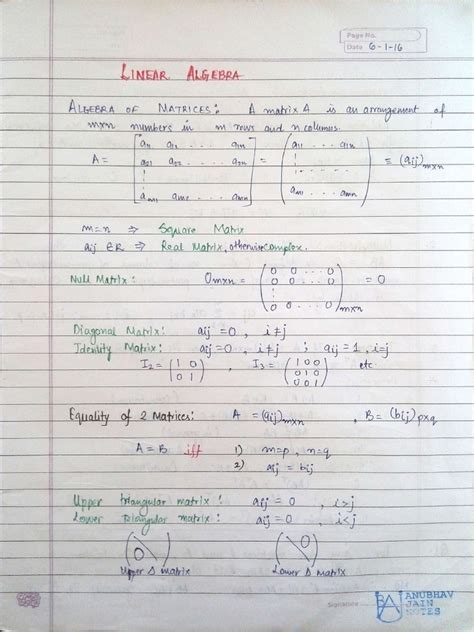 Page No.
Date 6-1-16
LINEAR ALGEBRA
ALGEBRA OF MATRICES: A matrix A is an arrangement of
mxn numbers in m rows and n columns.
A = [a11 a12 . . . a1n
a21 a22 . . . a2n
⋮
am1 am2 . . . amn] = (a11 . . . a1n
⋮
am1 . . . amn) = (aij)mxn
m=n ⇒ Square Matrix
aij ∈R ⇒ Real Matrix, otherwise complex.
Null Matrix: Omxn = (0 0 . . . 0
0 0 . . . 0
⋮
0 0 . . . 0)mxn = 0
Diagonal Matrix: aij = 0 , i≠j
Identity Matrix: aij = 0, i≠j ; aij = 1, i=j
I2 = (1 0
0 1) , I3 = (1 0 0
0 1 0
0 0 1) etc
Equality of 2 Matrices: A = (aij)mxn , B = (bij)pxq
A = B iff 1) m=p, n=q
2) aij = bij
Upper triangular matrix : aij = 0 , i>j
Lower triangular matrix : aij = 0 , i<j
0 0
Upper Δ matrix Lower Δ matrix
Signature
AJ ANUBHAV
JAIN
NOTES